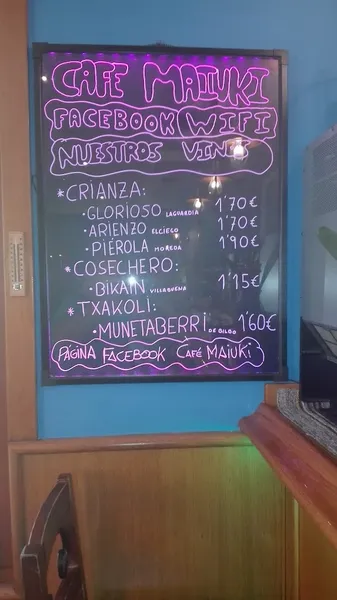 CAFE MAIUKI
FACEBOOK WIFI
NUESTROS VIN
*CRIANZA:
•GLORIOSO LAGUARDIA 1'70€
•ARIENZO ELCIELO 1'70€
•PIÉROLA MOREDA 1'90€
*COSECHERO:
•BIKAIN VILLABUENA 1'15€
*TXAKOLI:
•MUNETABERRI DE BILBO 1'60€
PÁGINA FACEBOOK CAFÉ MAIUKI